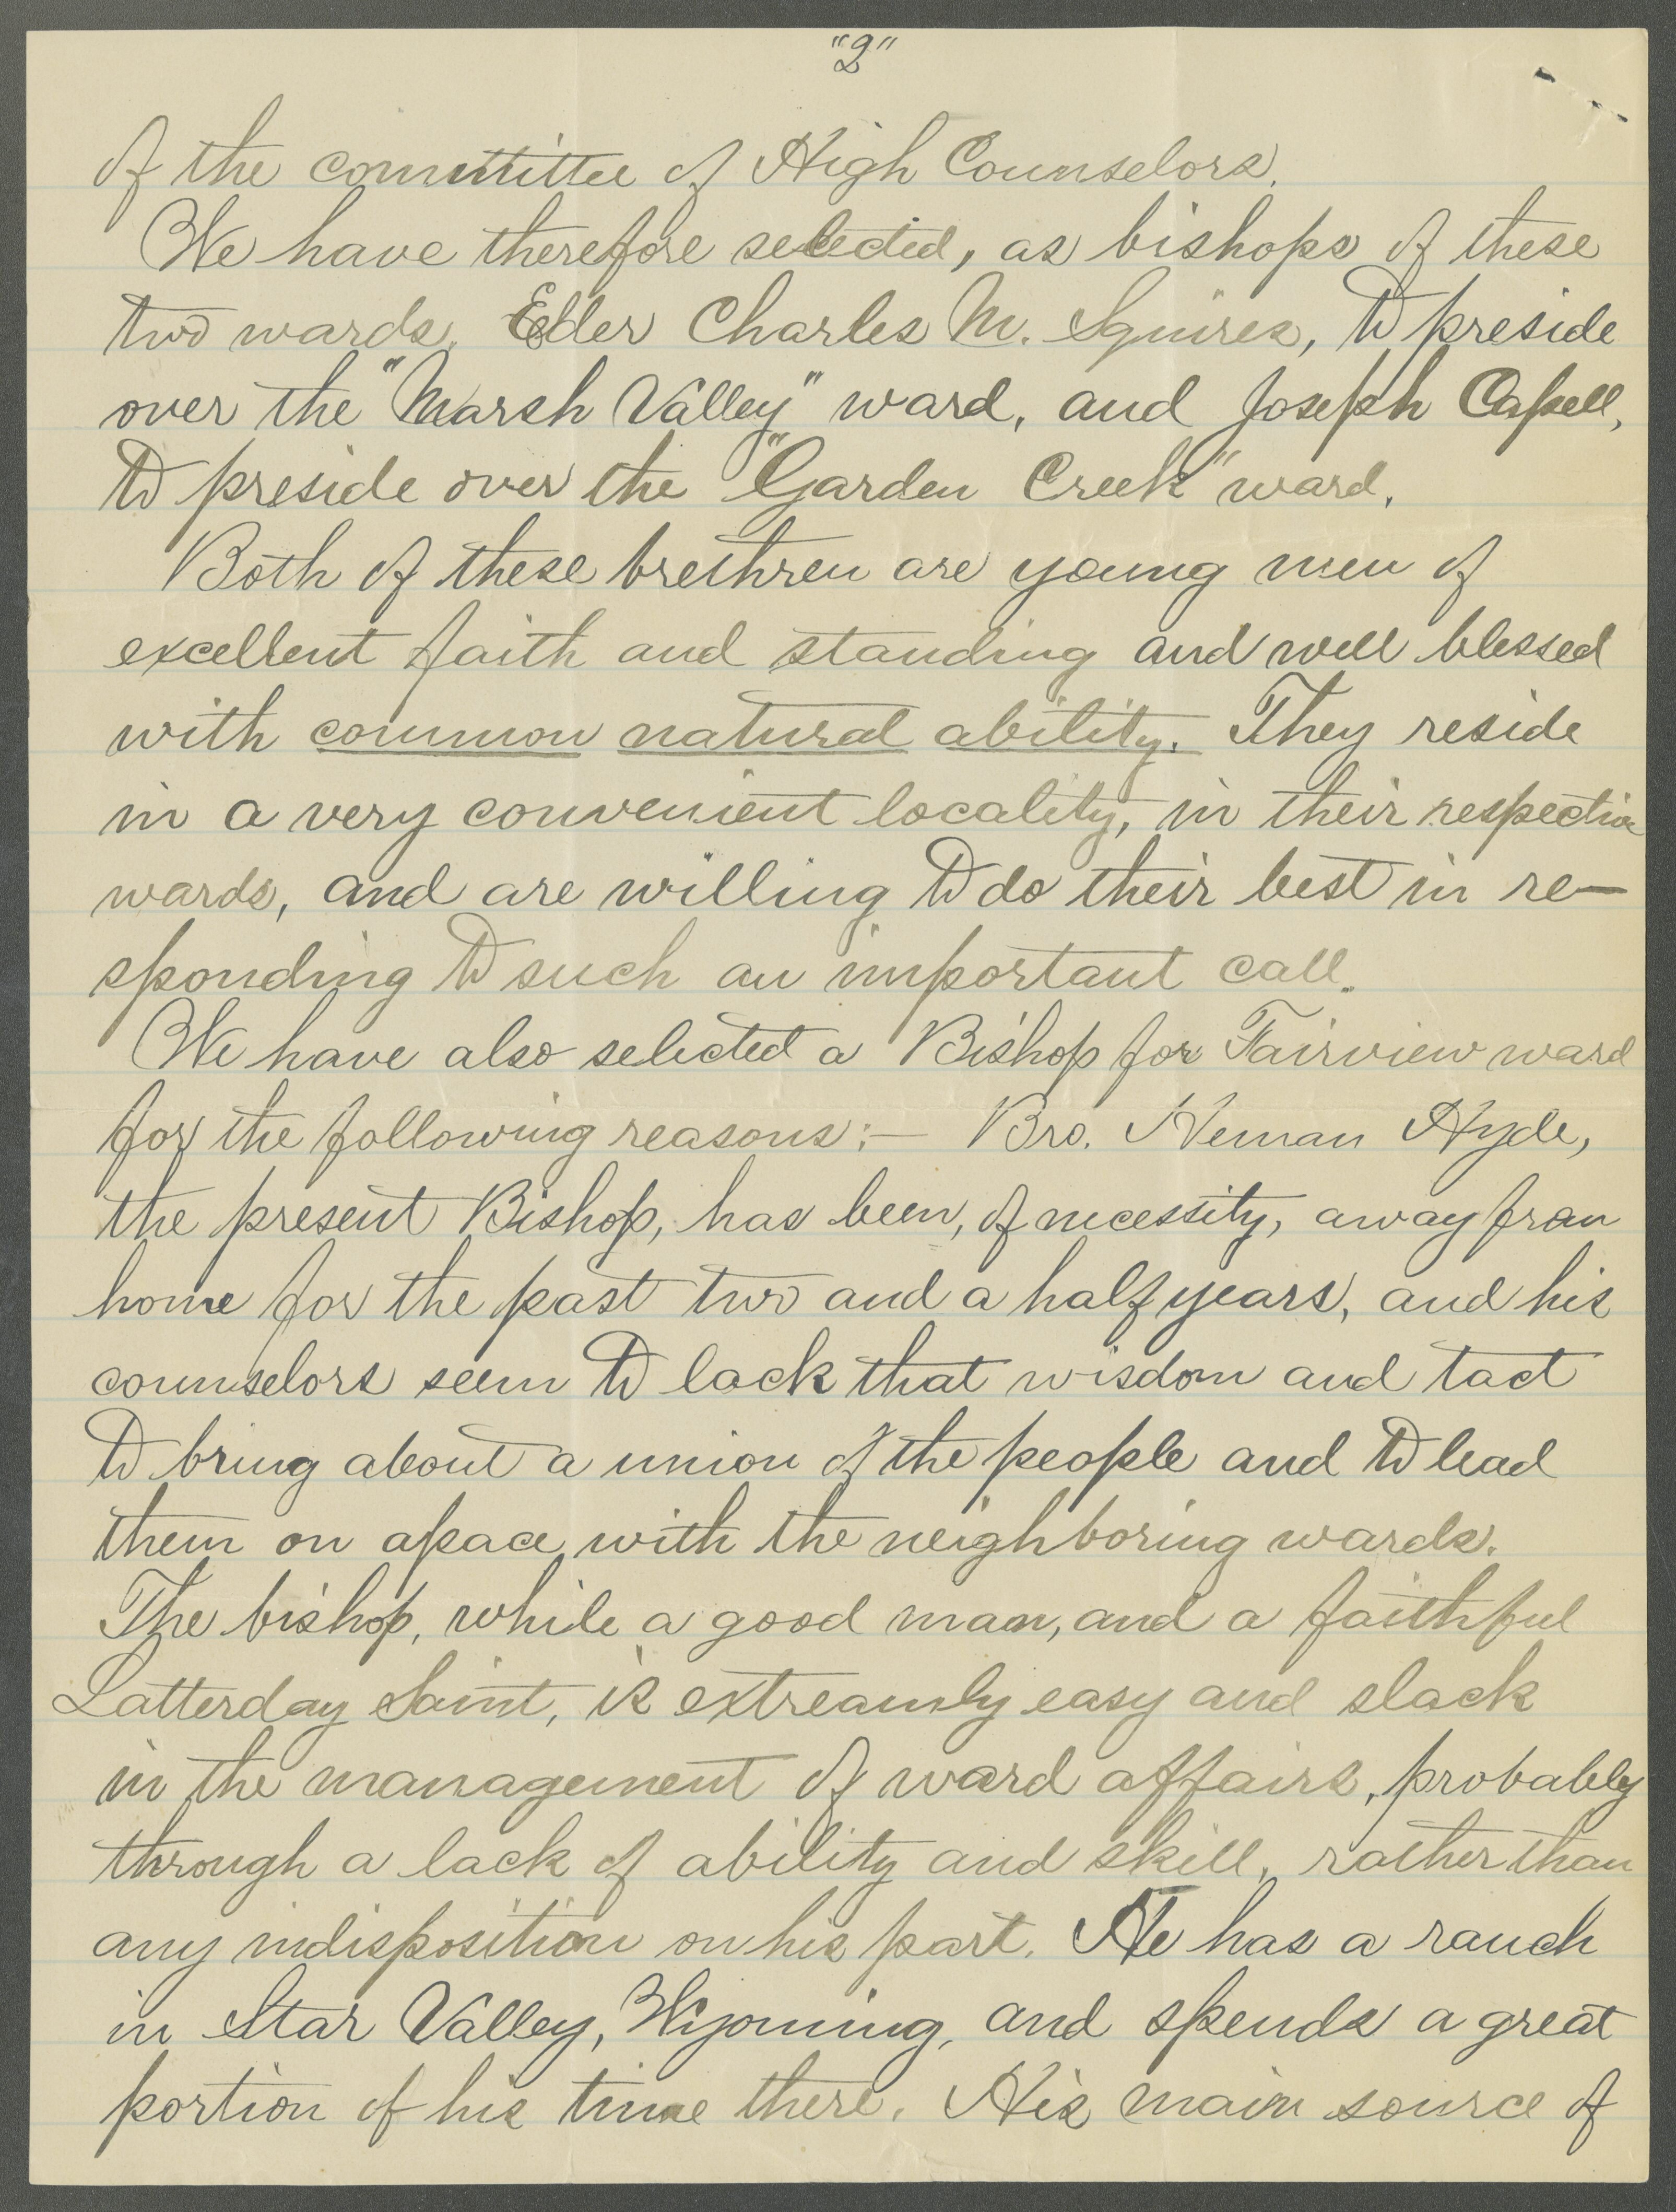 "2"
of the committee of High Counselors.
We have therefore selected, as bishops of these
two wards, Elder Charles M. Squires, to preside
over the "Marsh Valley" ward, and Joseph Capell,
to preside over the "Garden Creek" ward.
Both of these brethren are young men of
excellent faith and standing and well blessed
with common natural ability. They reside
in a very convenient locality, in their respective
wards, and are willing to do their best in re-
sponding to such an important call.
We have also selected a Bishop for Fairview ward
for the following reasons:— Bro. Heman Hyde,
the present Bishop, has been, of necessity, away from
home for the past two and a half years, and his
counselors seem to lack that wisdom and tact
to bring about a union of the people and to lead
them on apace with the neighboring wards.
The bishop, while a good man, and a faithful
Latterday Saint, is extreamly easy and slack
in the management of ward affairs, probably
through a lack of ability and skill, rather than
any indisposition on his part. He has a ranch
in Star Valley, Wyoming, and spends a great
portion of his time there. His main source of